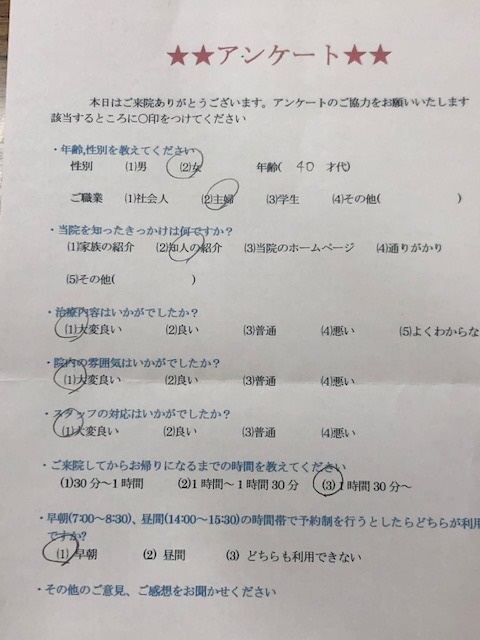 ★★アンケート★★
本日はご来院ありがとうございます。アンケートのご協力をお願いいたします
該当するところに〇印をつけてください
・年齢,性別を教えてください
性別 (1)男 (2)女 年齢( 40 才代)
ご職業 (1)社会人 (2)主婦 (3)学生 (4)その他( )
・当院を知ったきっかけは何ですか?
(1)家族の紹介 (2)知人の紹介 (3)当院のホームページ (4)通りがかり
(5)その他( )
・治療内容はいかがでしたか?
(1)大変良い (2)良い (3)普通 (4)悪い (5)よくわからな
・院内の雰囲気はいかがでしたか?
(1)大変良い (2)良い (3)普通 (4)悪い
・スタッフの対応はいかがでしたか?
(1)大変良い (2)良い (3)普通 (4)悪い
・ご来院してからお帰りになるまでの時間を教えてください
(1)30分~1時間 (2)1時間~1時間30分 (3)1時間30分~
・早朝(7:00~8:30)、昼間(14:00~15:30)の時間帯で予約制を行うとしたらどちらが利用
ですか?
(1) 早朝 (2) 昼間 (3) どちらも利用できない
・その他のご意見、ご感想をお聞かせください